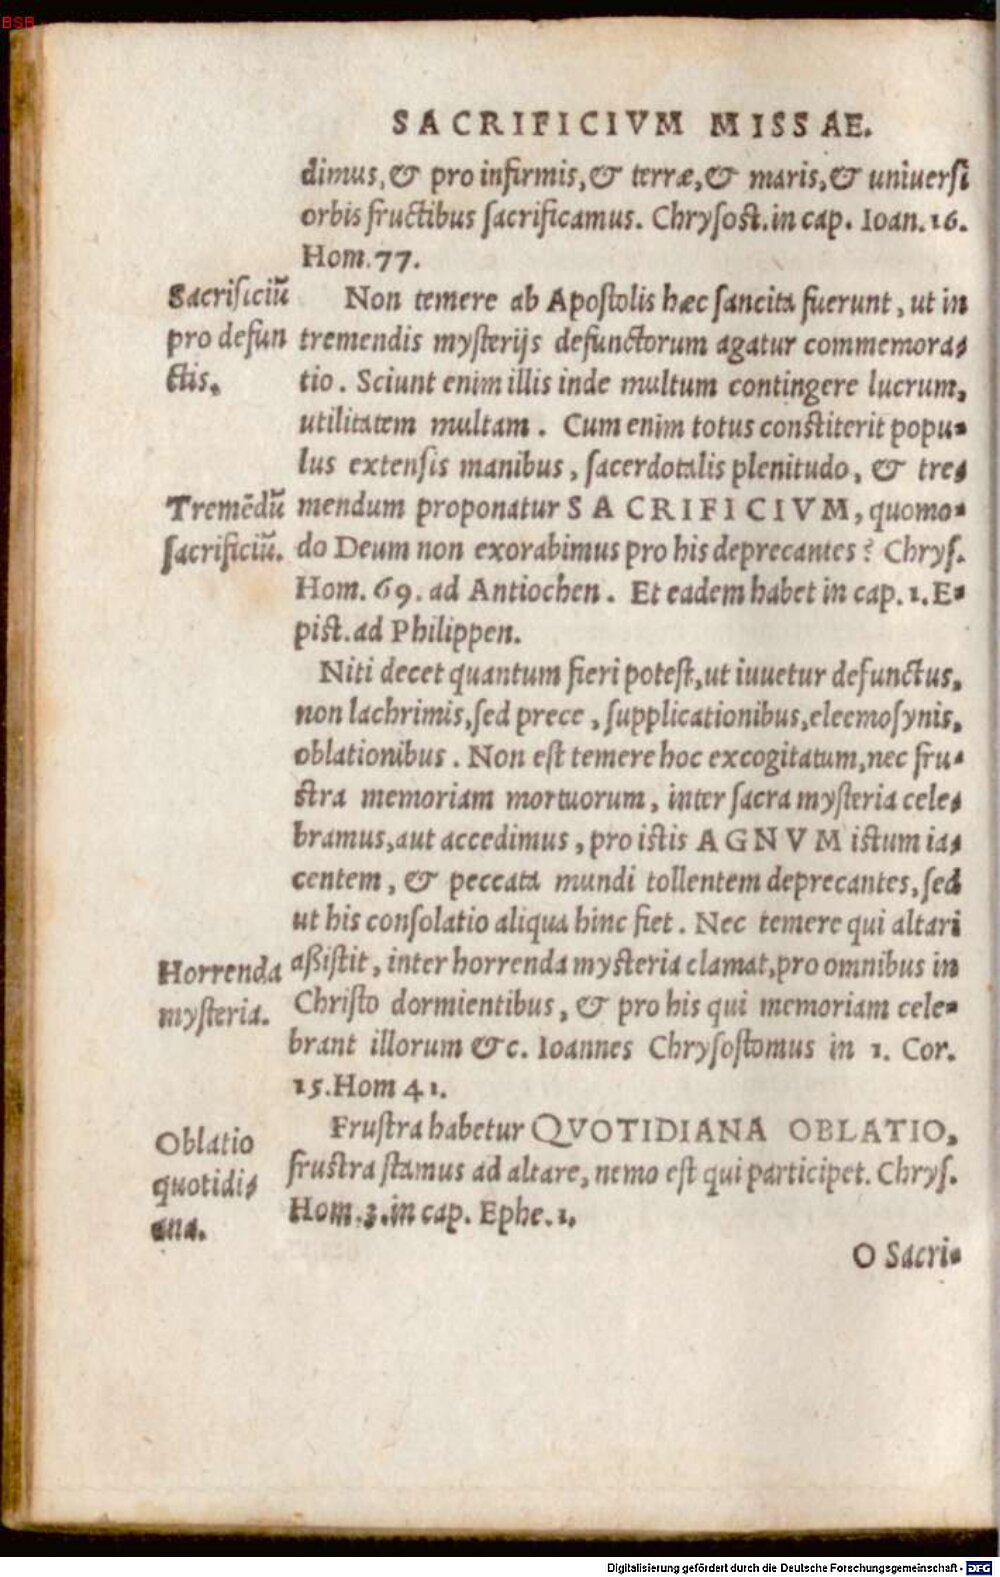 BSB
SACRIFICIVM MISSAE.
dimus, & pro infirmis, & terræ, & maris, & uniuersi
orbis fructibus sacrificamus. Chrysost. in cap. Ioan. 16.
Hom. 77.
Sacrificiū
pro defun
ctis.
Non temere ab Apostolis hæc sancita fuerunt, ut in
tremendis mysterijs defunctorum agatur commemora-
tio. Sciunt enim illis inde multum contingere lucrum,
utilitatem multam. Cum enim totus constiterit popu-
lus extensis manibus, sacerdotalis plenitudo, & tre-
Tremēdū
sacrificiū.
mendum proponatur SACRIFICIVM, quomo-
do Deum non exorabimus pro his deprecantes? Chrys.
Hom. 69. ad Antiochen. Et eadem habet in cap. 1. E-
pist. ad Philippen.
Niti decet quantum fieri potest, ut iuuetur defunctus,
non lachrimis, sed prece, supplicationibus, eleemosynis,
oblationibus. Non est temere hoc excogitatum, nec fru-
stra memoriam mortuorum, inter sacra mysteria cele-
bramus, aut accedimus, pro istis AGNVM istum ia-
centem, & peccata mundi tollentem deprecantes, sed
ut his consolatio aliqua hinc fiet. Nec temere qui altari
Horrenda
mysteria.
aßistit, inter horrenda mysteria clamat, pro omnibus in
Christo dormientibus, & pro his qui memoriam cele-
brant illorum &c. Ioannes Chrysostomus in 1. Cor.
15. Hom 41.
Oblatio
quotidi-
ana.
Frustra habetur QVOTIDIANA OBLATIO,
frustra stamus ad altare, nemo est qui participet. Chrys.
Hom. 3. in cap. Ephe. 1.
O Sacri-
Digitalisierung gefördert durch die Deutsche Forschungsgemeinschaft - DFG